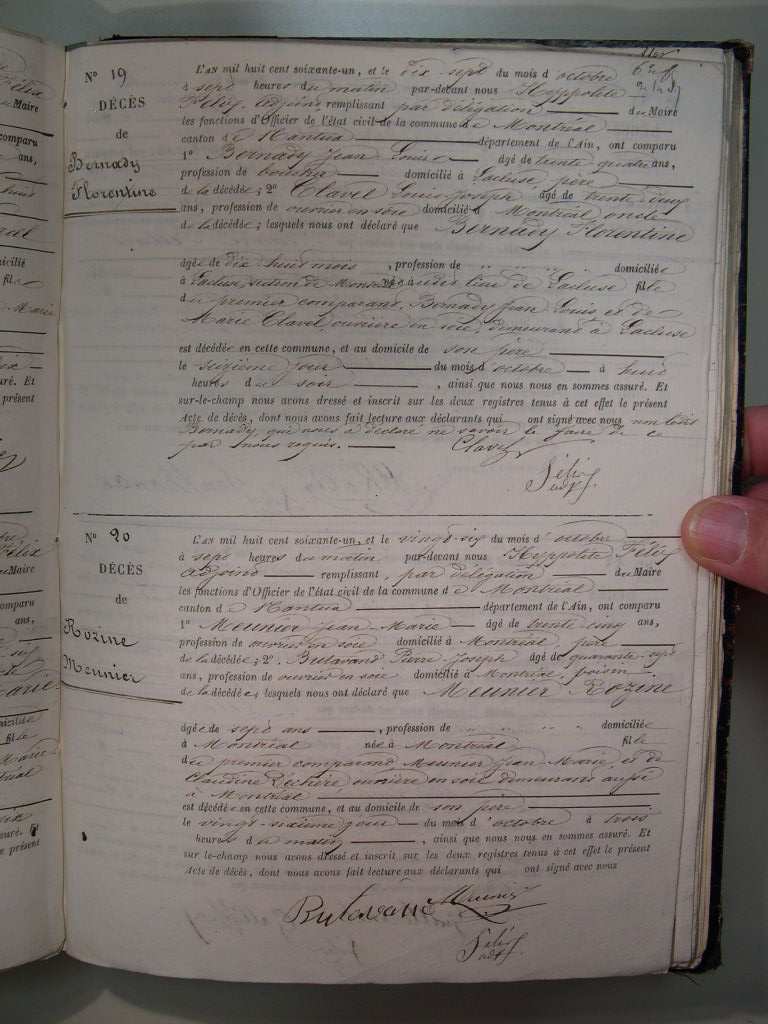 N° 19
DÉCÈS
de
Bernady
Florentine
L'AN mil huit cent soixante-un, et le dix sept du mois d'octobre
à sept heures du matin par-devant nous Hyppolite
Félix, adjoint remplissant par délégation du Maire
les fonctions d'Officier de l'état civil de la commune de Montréal
canton de Nantua département de l'Ain, ont comparu
1° Bernady Jean Louis âgé de trente quatre ans,
profession de boucher domicilié à Lacluse père
de la décédée; 2° Clavel Louis Joseph âgé de trente cinq
ans, profession de ouvrier en soie domicilié à Montréal oncle
de la décédée; lesquels nous ont déclaré que Bernady Florentine
âgée de dix huit mois, profession de domiciliée
à Lacluse section de Montréal née à lieu de Lacluse fille
du premier comparant, Bernady Jean Louis et de
Marie Clavel ouvrière en soie, demeurant à Lacluse
est décédée en cette commune, et au domicile de son père
le seizième jour du mois d'octobre à huit
heures du soir, ainsi que nous nous en sommes assuré. Et
sur-le-champ nous avons dressé et inscrit sur les deux registres tenus à cet effet le présent
Acte de décès, dont nous avons fait lecture aux déclarants qui ont signé avec nous non ledit
Bernady que nous a déclaré ne savoir le faire de ce
par nous requis. Clavel
Félix
adjt
N° 20
DÉCÈS
de
Rozine
Meunier
L'AN mil huit cent soixante-un, et le vingt-six du mois d'octobre
à sept heures du matin par-devant nous Hyppolite Félix
adjoint remplissant par délégation du Maire
les fonctions d'Officier de l'état civil de la commune de Montréal
canton de Nantua département de l'Ain, ont comparu
1° Meunier Jean Marie âgé de trente cinq ans,
profession de ouvrier en soie domicilié à Montréal père
de la décédée; 2° Butavand Pierre Joseph âgé de quarante-sept
ans, profession de ouvrier en soie domicilié à Montréal, voisin
de la décédée, lesquels nous ont déclaré que Meunier Rozine
âgée de sept ans, profession de domiciliée
à Montréal née à Montréal fille
du premier comparant Meunier Jean Marie, et de
Claudine ouvrière en soie demeurant aussi
à Montréal
est décédée en cette commune, et au domicile de son père
le vingt-sixième jour du mois d'octobre à trois
heures du matin, ainsi que nous nous en sommes assuré. Et
sur-le-champ nous avons dressé et inscrit sur les deux registres tenus à cet effet le présent
Acte de décès, dont nous avons fait lecture aux déclarants qui ont signé avec nous
Butavand Meunier
Félix
adjt